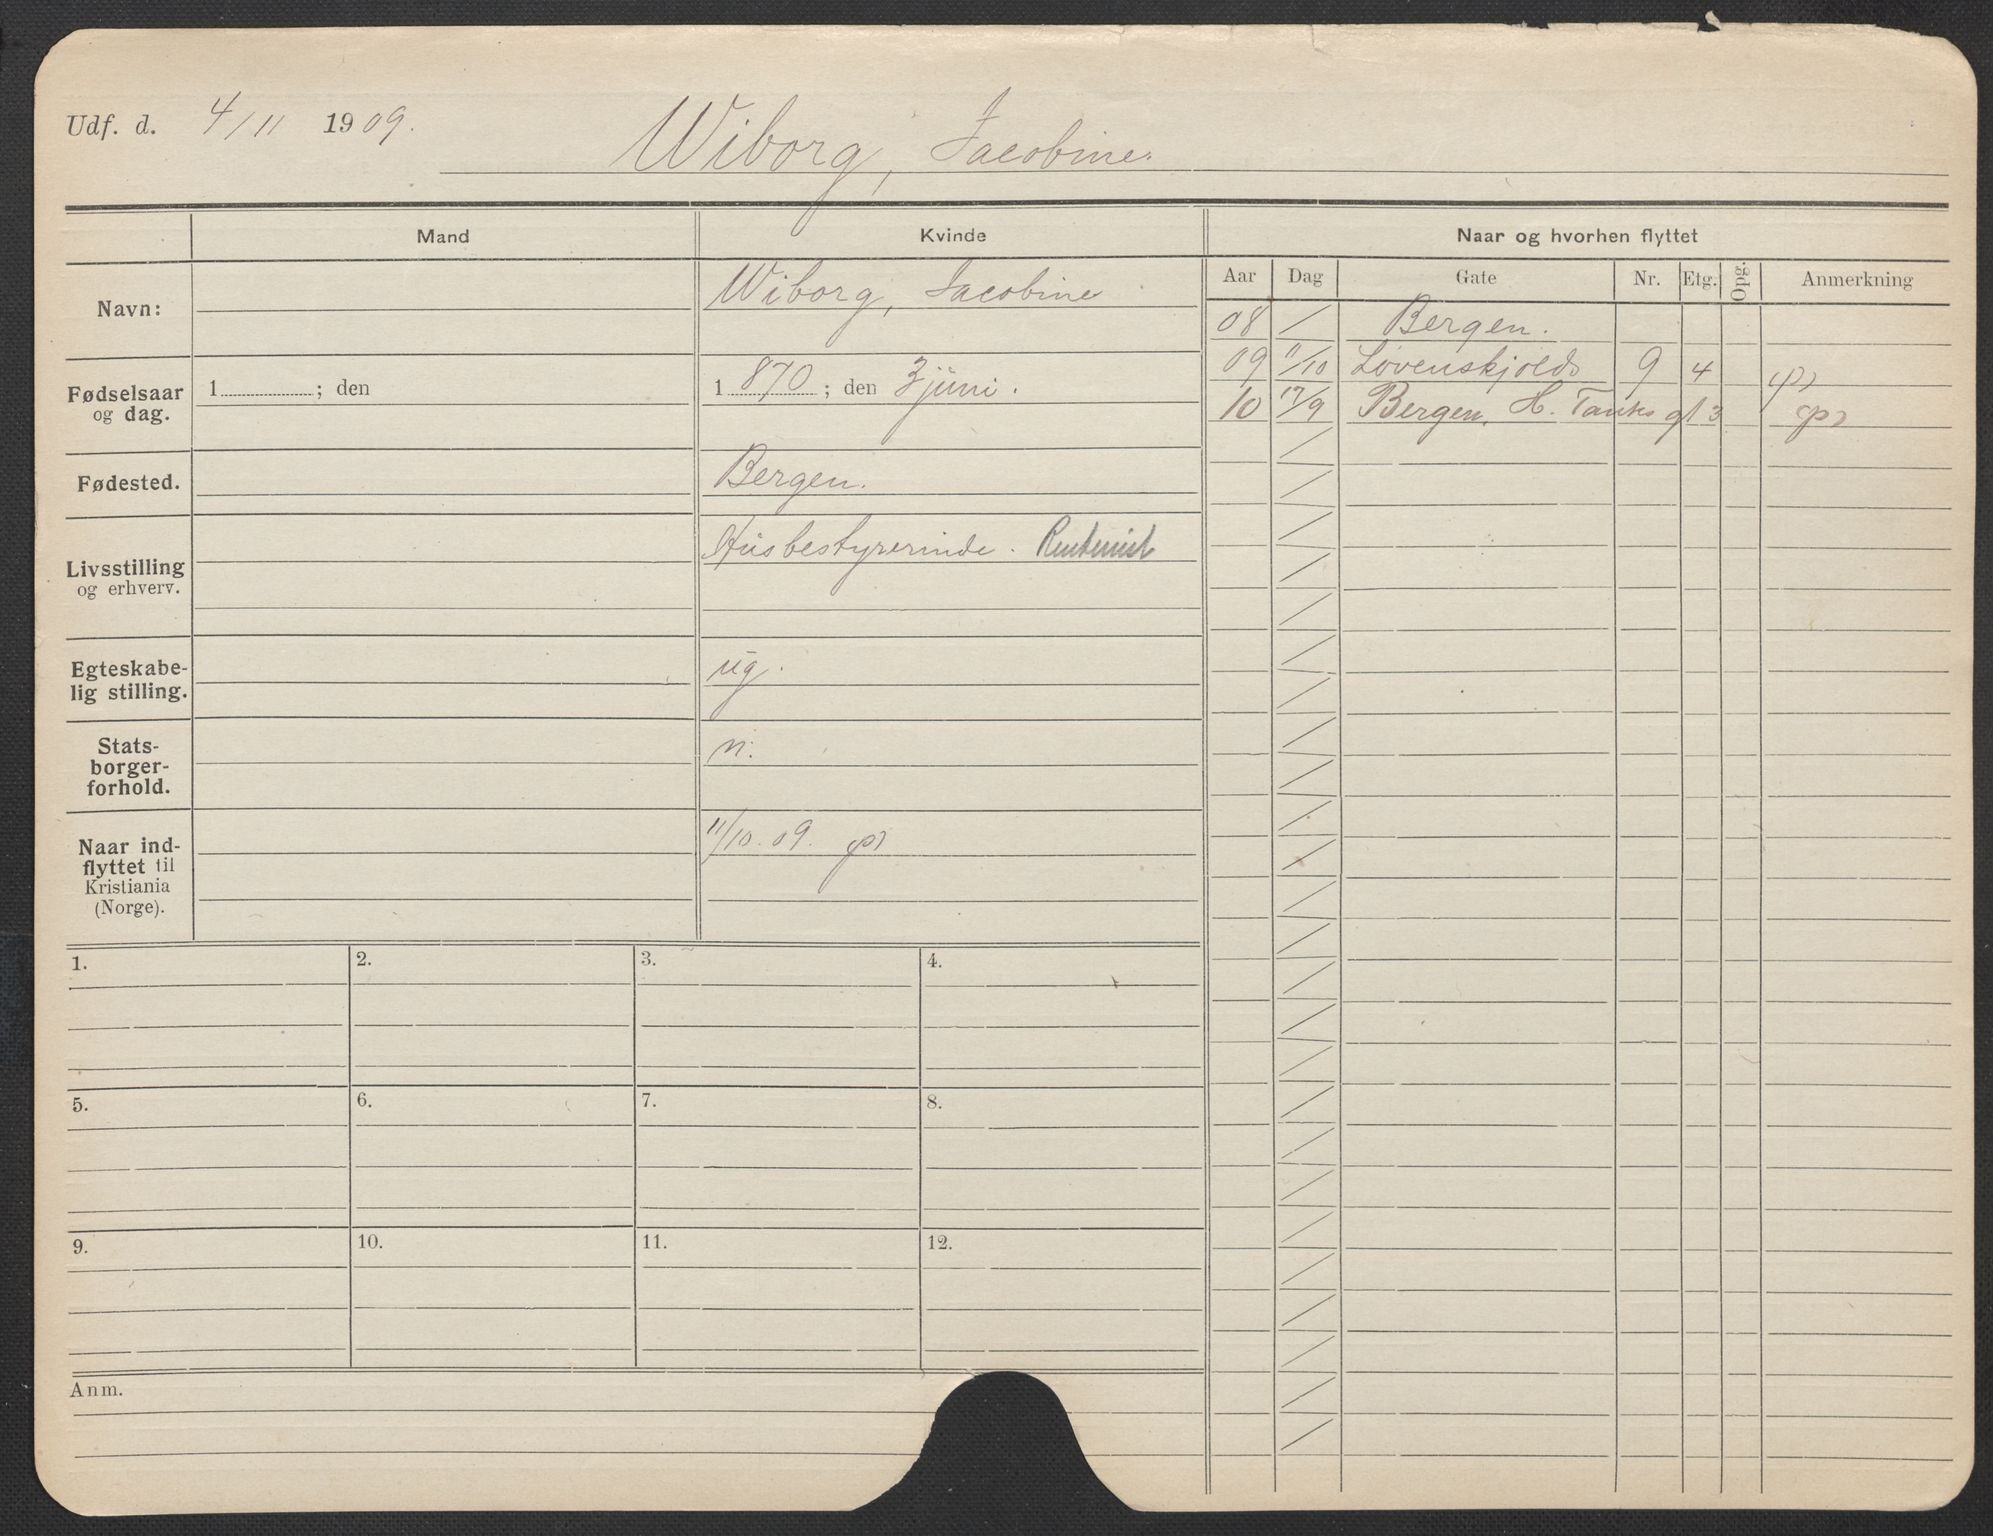 Udf. d. 4/11 1909.
Wiborg, Jacobine
Mand Kvinde Naar og hvorhen flyttet
Aar Dag Gate Nr. Etg. Opg. Anmerkning
Navn: Wiborg, Jacobine
08 / Bergen.
09 11/10 Løvenskjolds 9 4
10 17/9 Bergen, H. Tanks g 13
Fødselsaar
og dag.
1 ; den
1 870 ; den 3 juni.
Fødested. Bergen.
Livsstilling
og erhverv.
Husbestyrerinde. Rentenist
Egteskabe-
lig stilling.
ug.
Stats-
borger-
forhold.
n.
Naar ind-
flyttet til
Kristiania
(Norge).
11/10. 09.
1. 2. 3. 4.
5. 6. 7. 8.
9. 10. 11. 12.
Anm.